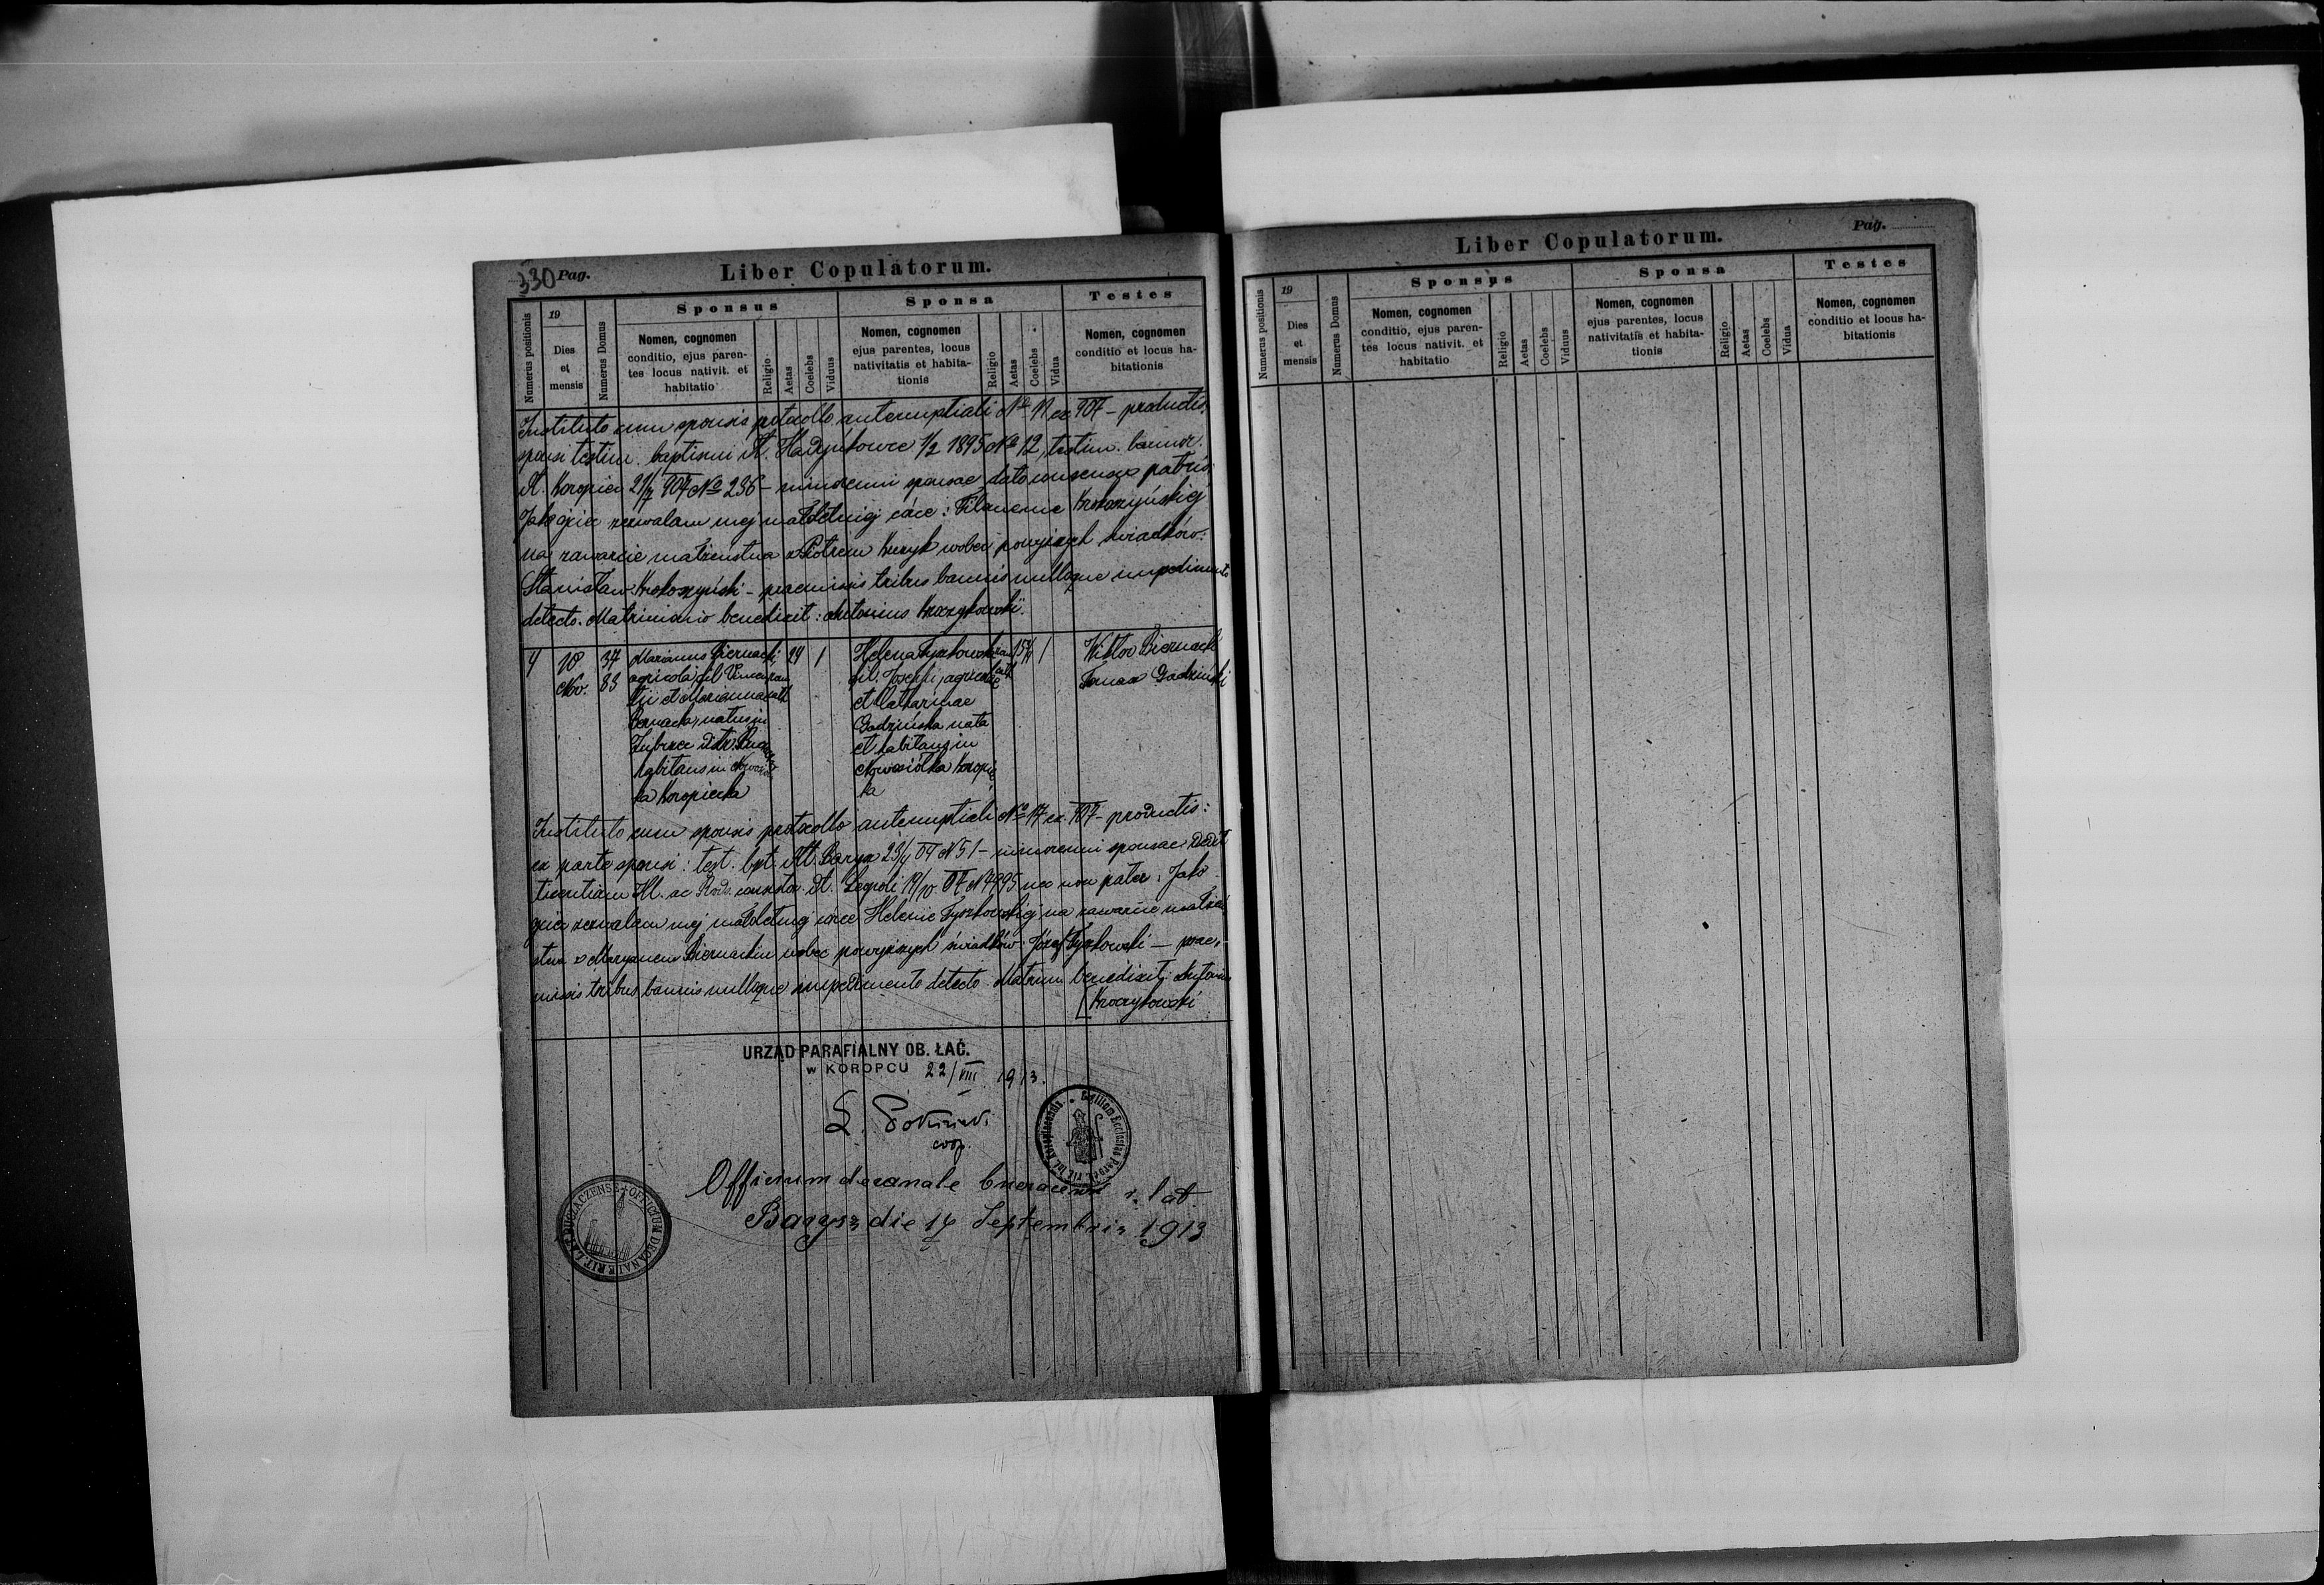 330 Pag.
Liber Copulatorum.
Numerus positionis
19
Dies
et
mensis
Numerus Domus
Sponsus
Nomen, cognomen
conditio, ejus paren-
tes locus nativit. et
habitatio
Religio
Aetas
Coelebs
Viduus
Sponsa
Nomen, cognomen
ejus parentes, locus
nativitatis et habita-
tionis
Religio
Aetas
Coelebs
Vidua
Testes
Nomen, cognomen
conditio et locus ha-
bitationis
Instituto cum sponsis protocollo antenuptiali No 12 ex 907 - productis:
sponsi testim. baptismi dt. Hadyńkowce 1/2 1895 No 12, testim. bannor.
dt. Koropiec 21/7 907 No 236 - minorenni sponsae dato consensu patris:
Jako ojciec zezwalam mej małoletniej córce: Filomenie Krokoszyńskiej
na zawarcie małżeństwa z Piotrem Kuzyk wobec powyższych świadków:
Stanisław Krokoszyński - praemissis tribus bannis nulloque impedimento
detecto. Matrimonio benedixit: Antonius Kroczykowski.
4
10
Nov.
37
83
Marianus Biernacki,
agricola, fil. Vincen
tii et Mariannae
Bernacka, natus in
Zubrzec Distr. Buczacz
habitans in Nowosiół
ka Koropiecka
24
1
Helena Tyszkowska
fil. Josephi, agricolae
et Catharinae
Gadzińska nata
et habitans in
Nowosiółka Koropie
ka
15
1
Wiktor Biernacki
Tomasz Gadziński
Instituto cum sponsis protocollo antenuptiali No 17 ex. 907 - productis:
ex parte sponsi: test. bpt. dt. Barysz 23/4 04 N 51 - minorenni sponsae dedit
licentiam Ill. ac Rvds. consistor. dt. Leopoli 19/10 07 N 4995 nec non pater: Jako
ojciec zezwalam mej małoletniej córce Helenie Tyszkowskiej na zawarcie małżeń
stwa z Maryanem Biernackim wobec powyższych świadków: Józef Tyszkowski — prae-
missis tribus bannis nulloque impedimento detecto. Matrim. benedixit: Antonius
[Kroczykowski
URZĄD PARAFIALNY OB. ŁAĆ.
w KOROPCU 22/VIII 1913.
coop.
Officium decanale bucacense r. lat.
Barysz die 14 Septembris 1913
OFFICIUM DECANALE RIT. LAT. BUCZACZENSE
Pag.
Liber Copulatorum.
Numerus positionis
19
Dies
et
mensis
Numerus Domus
Sponsus
Nomen, cognomen
conditio, ejus paren-
tes locus nativit. et
habitatio
Religio
Aetas
Coelebs
Viduus
Sponsa
Nomen, cognomen
ejus parentes, locus
nativitatis et habita-
tionis
Religio
Aetas
Coelebs
Vidua
Testes
Nomen, cognomen
conditio et locus ha-
bitationis